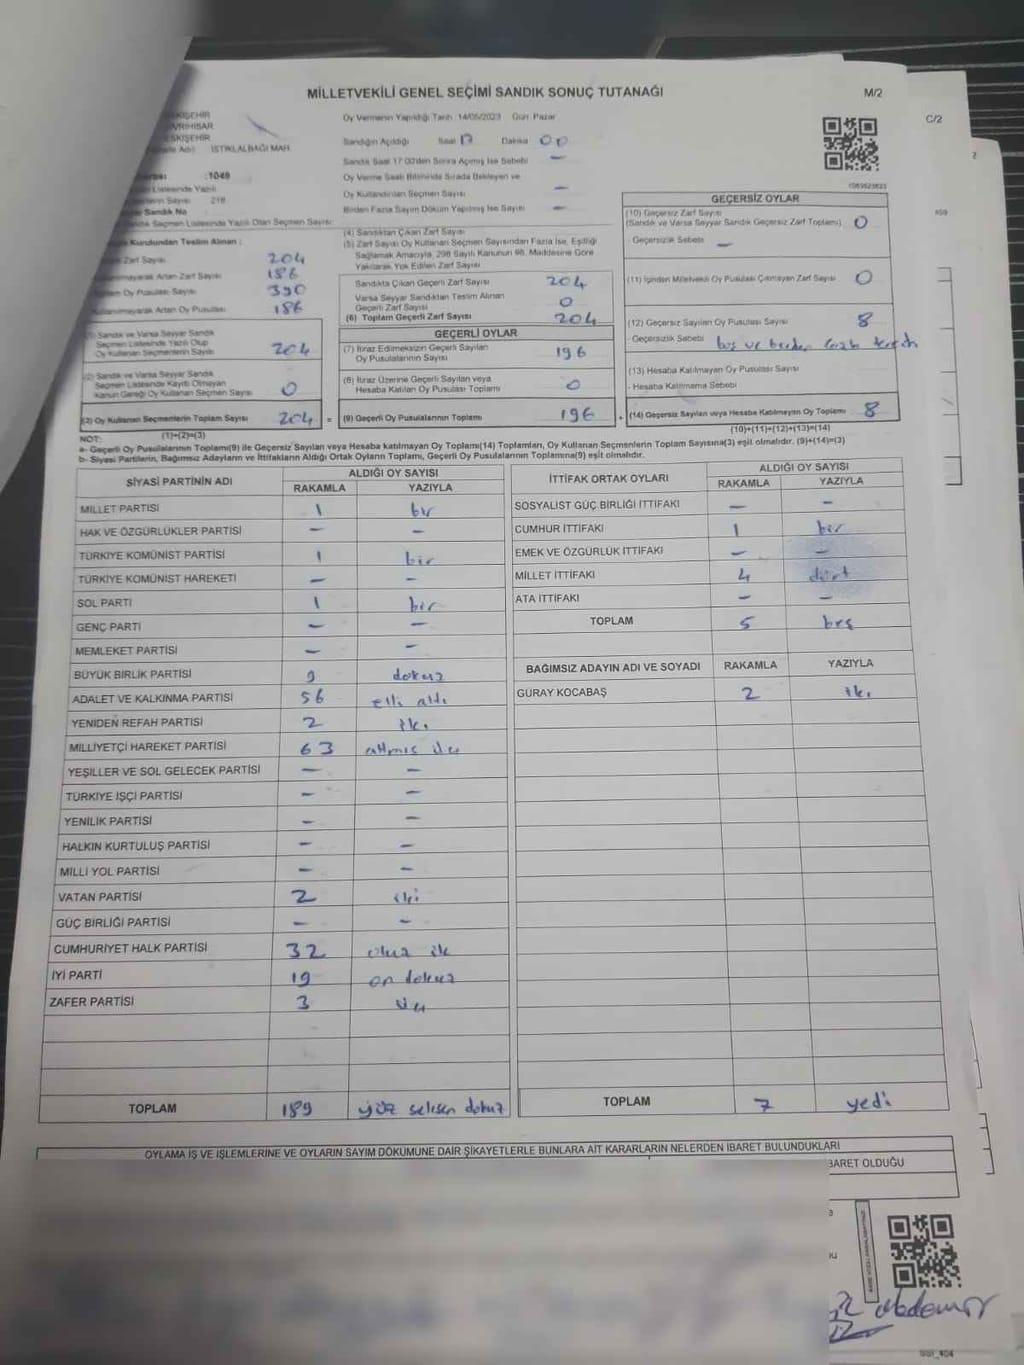 MİLLETVEKİLİ GENEL SEÇİMİ SANDIK SONUÇ TUTANAĞI
M/2
C/2
2
Oy Vermenin Yapıldığı Tarih: 14/05/2023 Gün: Pazar
Sandığın Açıldığı Saat 17 Dakika 00
İSTİKLALBAĞI MAH.
:1049
218
Sandık Saat 17:00'den Sonra Açılmış İse Sebebi —
Oy Verme Saati Bitiminde Sırada Bekleyen ve
Oy Kullandırılan Seçmen Sayısı —
Birden Fazla Sayım Döküm Yapılmış İse Sayısı —
Kurulundan Teslim Alınan :
Zarf Sayısı 204
Artan Zarf Sayısı 186
Oy Pusulası Sayısı 390
Artan Oy Pusulası 186
Sandık ve Varsa Seyyar Sandık
Seçmen Listesinde Yazılı Olup
Oy Kullanan Seçmenlerin Sayısı 204
Sandık ve Varsa Seyyar Sandık
Seçmen Listesinde Kayıtlı Olmayan
Kanun Gereği Oy Kullanan Seçmen Sayısı 0
(3) Oy Kullanan Seçmenlerin Toplam Sayısı 204 =
(1)+(2)=(3)
(4) Sandıktan Çıkan Zarf Sayısı
(5) Zarf Sayısı Oy Kullanan Seçmen Sayısından Fazla İse, Eşitliği
Sağlamak Amacıyla, 298 Sayılı Kanunun 98. Maddesine Göre
Yakılarak Yok Edilen Zarf Sayısı
Sandıkta Çıkan Geçerli Zarf Sayısı 204
Varsa Seyyar Sandıktan Teslim Alınan
Geçerli Zarf Sayısı 0
(6) Toplam Geçerli Zarf Sayısı 204
GEÇERLİ OYLAR
(7) İtiraz Edilmeksizin Geçerli Sayılan
Oy Pusulalarının Sayısı 196
(8) İtiraz Üzerine Geçerli Sayılan veya
Hesaba Katılan Oy Pusulası Toplamı 0
(9) Geçerli Oy Pusulalarının Toplamı 196 +
GEÇERSİZ OYLAR
(10) Geçersiz Zarf Sayısı
(Sandık ve Varsa Seyyar Sandık Geçersiz Zarf Toplamı) 0
- Geçersizlik Sebebi —
(11) İçinden Milletvekili Oy Pusulası Çıkmayan Zarf Sayısı 0
(12) Geçersiz Sayılan Oy Pusulası Sayısı 8
- Geçersizlik Sebebi boş ve birden fazla tercih
(13) Hesaba Katılmayan Oy Pusulası Sayısı
- Hesaba Katılmama Sebebi
(14) Geçersiz Sayılan veya Hesaba Katılmayan Oy Toplamı 8
(10)+(11)+(12)+(13)=(14)
NOT:
a- Geçerli Oy Pusulalarının Toplamı(9) ile Geçersiz Sayılan veya Hesaba katılmayan Oy Toplamı(14) Toplamları, Oy Kullanan Seçmenlerin Toplam Sayısına(3) eşit olmalıdır. (9)+(14)=(3)
b- Siyasi Partilerin, Bağımsız Adayların ve İttifakların Aldığı Oyların Toplamı, Geçerli Oy Pusulalarının Toplamına(9) eşit olmalıdır.
SİYASİ PARTİNİN ADI ALDIĞI OY SAYISI
RAKAMLA YAZIYLA
MİLLET PARTİSİ 1 bir
HAK VE ÖZGÜRLÜKLER PARTİSİ — —
TÜRKİYE KOMÜNİST PARTİSİ 1 bir
TÜRKİYE KOMÜNİST HAREKETİ — —
SOL PARTİ 1 bir
GENÇ PARTİ — —
MEMLEKET PARTİSİ — —
BÜYÜK BİRLİK PARTİSİ 9 dokuz
ADALET VE KALKINMA PARTİSİ 56 elli altı
YENİDEN REFAH PARTİSİ 2 iki
MİLLİYETÇİ HAREKET PARTİSİ 63 altmış üç
YEŞİLLER VE SOL GELECEK PARTİSİ — —
TÜRKİYE İŞÇİ PARTİSİ — —
YENİLİK PARTİSİ — —
HALKIN KURTULUŞ PARTİSİ — —
MİLLİ YOL PARTİSİ — —
VATAN PARTİSİ 2 iki
GÜÇ BİRLİĞİ PARTİSİ — —
CUMHURİYET HALK PARTİSİ 32 otuz iki
İYİ PARTİ 19 on dokuz
ZAFER PARTİSİ 3 üç
TOPLAM 189 yüz seksen dokuz
İTTİFAK ORTAK OYLARI ALDIĞI OY SAYISI
RAKAMLA YAZIYLA
SOSYALİST GÜÇ BİRLİĞİ İTTİFAKI — —
CUMHUR İTTİFAKI 1 bir
EMEK VE ÖZGÜRLÜK İTTİFAKI — —
MİLLET İTTİFAKI 4 dört
ATA İTTİFAKI — —
TOPLAM 5 beş
BAĞIMSIZ ADAYIN ADI VE SOYADI RAKAMLA YAZIYLA
GÜRAY KOCABAŞ 2 iki
TOPLAM 7 yedi
OYLAMA İŞ VE İŞLEMLERİNE VE OYLARIN SAYIM DÖKÜMÜNE DAİR ŞİKAYETLERLE BUNLARA AİT KARARLARIN NELERDEN İBARET BULUNDUKLARI
BARET OLDUĞU